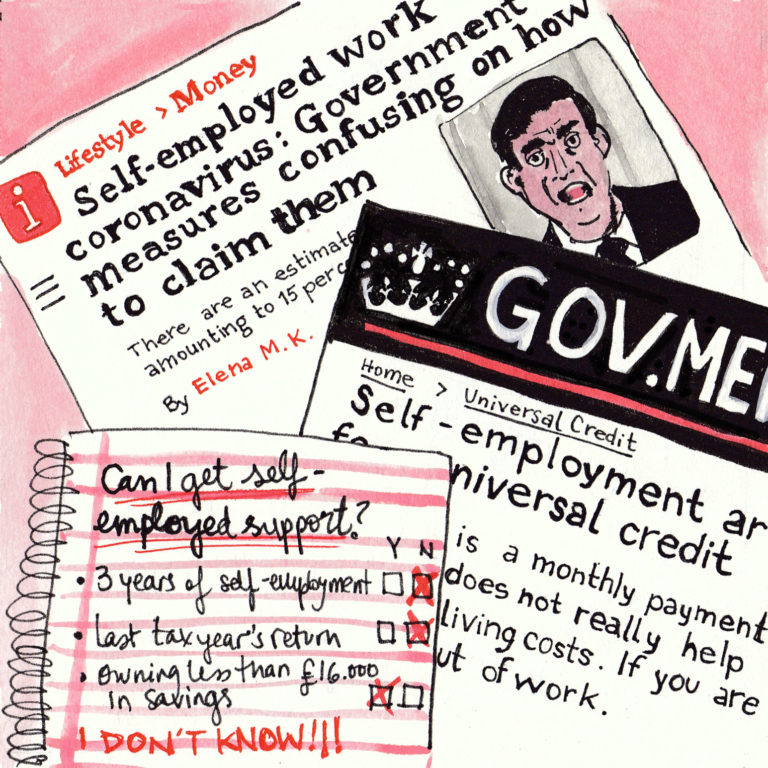 Lifestyle > Money
i
Self-employed work
coronavirus: Government
measures confusing on how
to claim them
There are an estimate
amounting to 15 perc
By Elena M.K.
GOV.ME
Home > Universal Credit
Self-employment ar
niversal credit
is a monthly payment
does not really help
living costs. If you are
ut of work.
Can I get self-
employed support?
Y N
• 3 years of self-employment
• Last tax year's return
• owning less than £16.000
in savings
I DON'T KNOW!!!